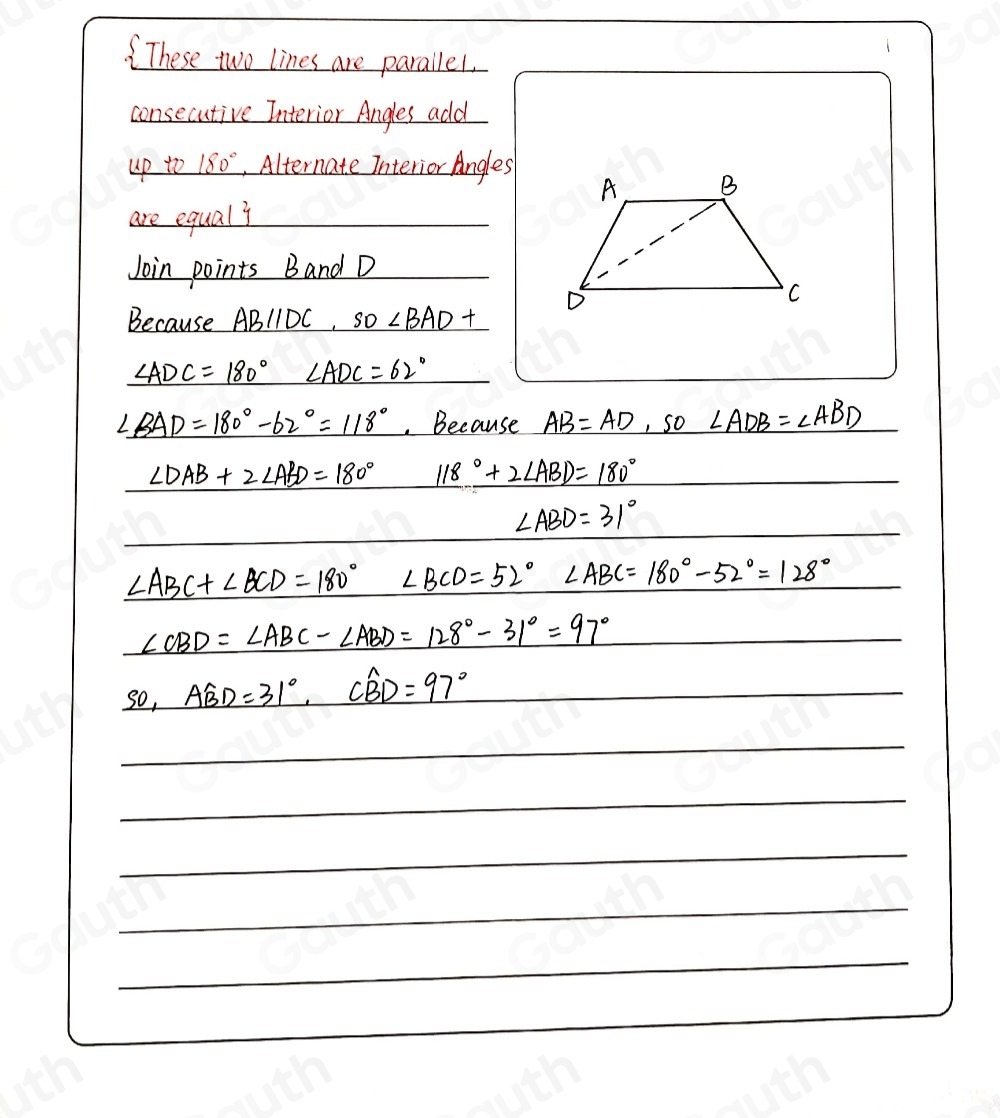 {These two lines are parallel,
consecutive Interior Angles add
up to 180°, Alternate Interior Angles
are equal}
Join points B and D
Because AB//DC, so ∠BAD +
∠ADC = 180° ∠ADC = 62°
∠BAD = 180° - 62° = 118°. Because AB = AD, so ∠ADB = ∠ABD
∠DAB + 2∠ABD = 180° 118° + 2∠ABD = 180°
∠ABD = 31°
∠ABC + ∠BCD = 180° ∠BCD = 52° ∠ABC = 180° - 52° = 128°
∠CBD = ∠ABC - ∠ABD = 128° - 31° = 97°
so, AB̂D = 31°. CB̂D = 97°
A B
D C
Gauth